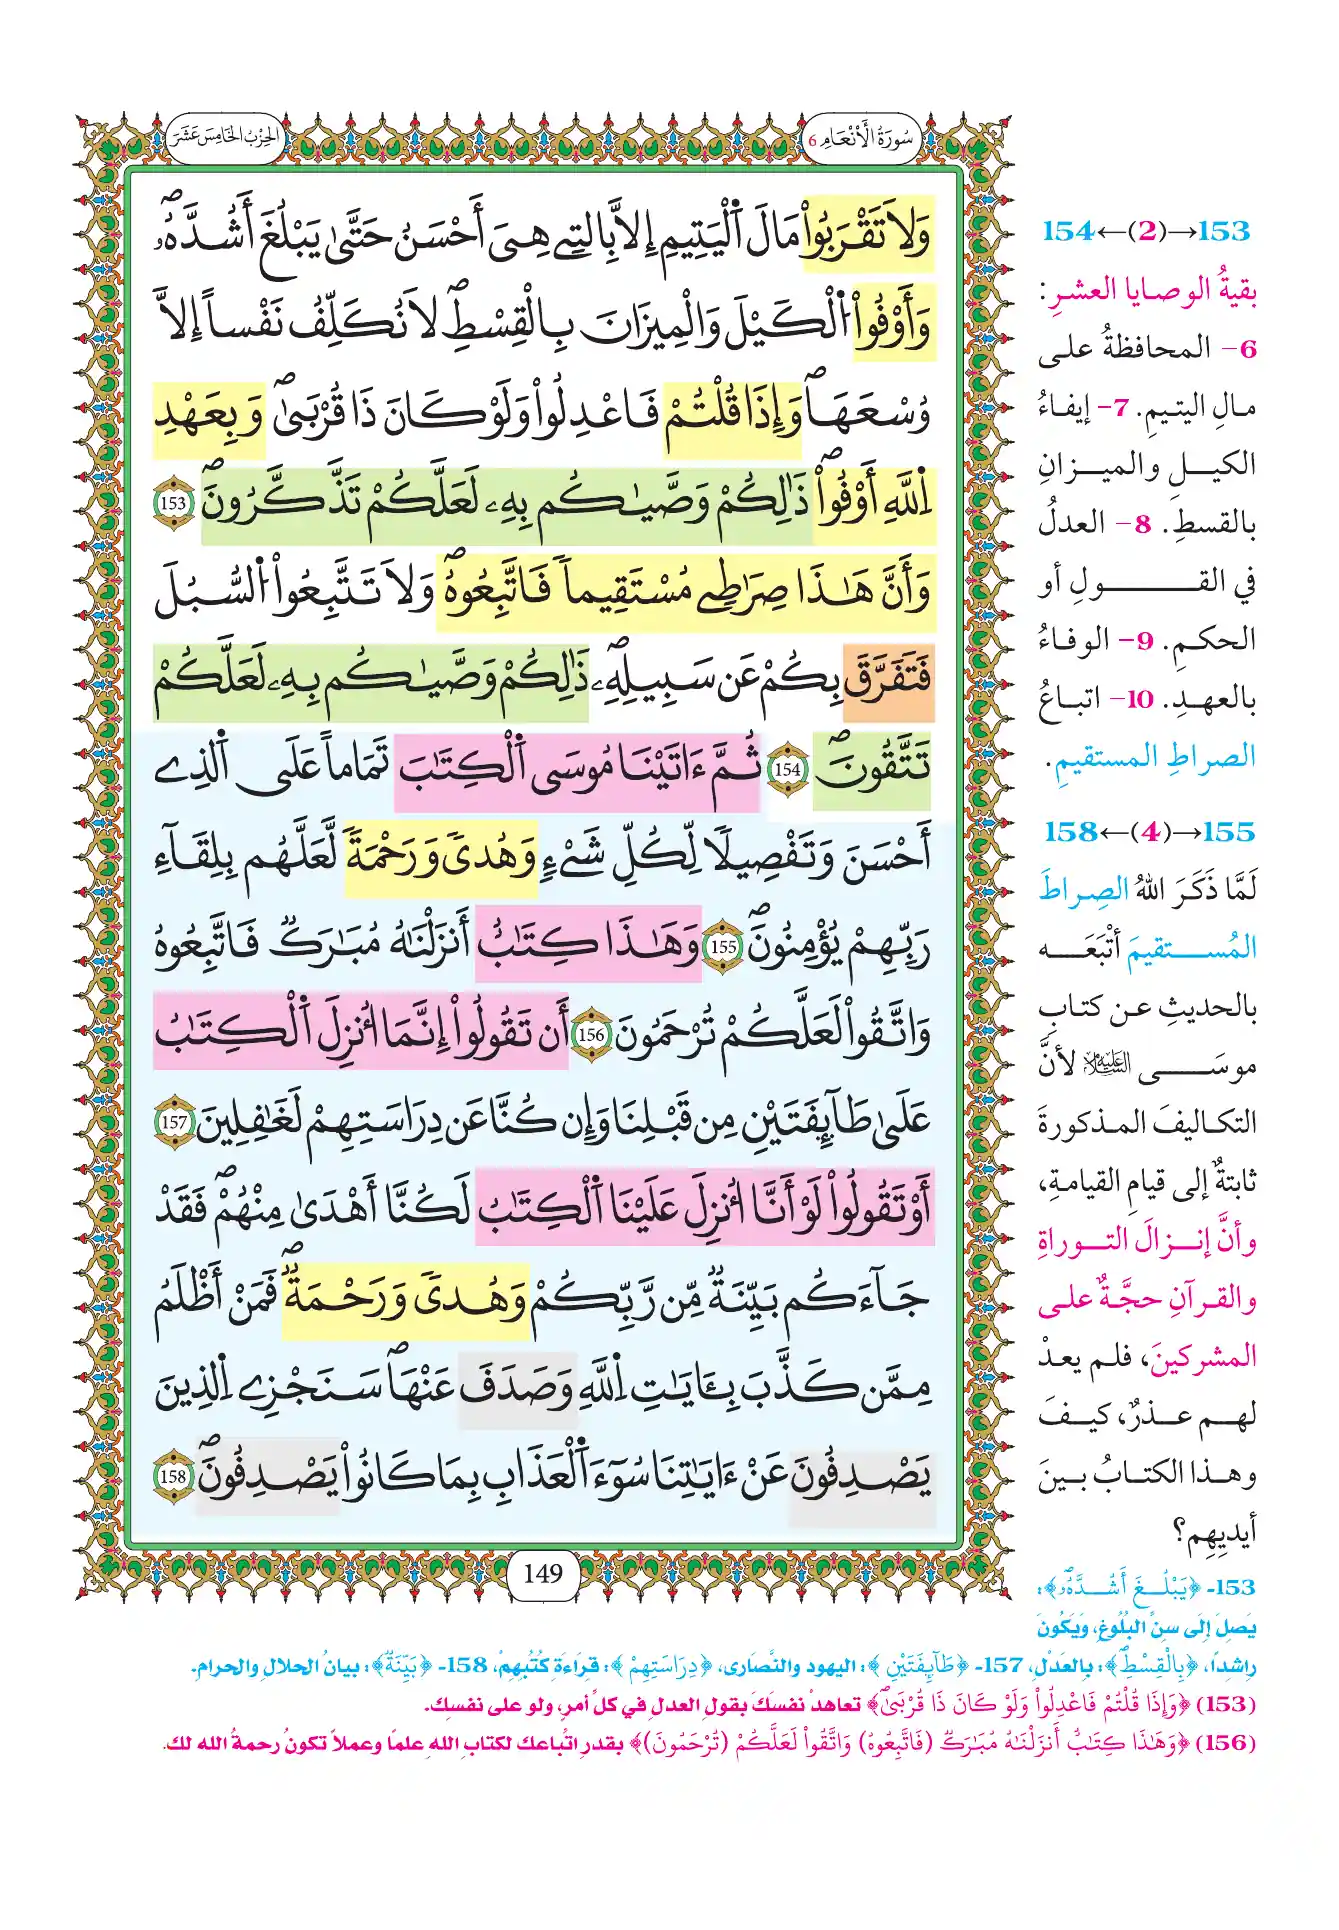 سُورَةُ الْأَنْعَامِ 6
الحِزْبُ الخَامِسَ عَشَرَ
وَلَا تَقْرَبُواْ مَالَ اَلْيَتِيمِ إِلَّا بِالتِے هِيَ أَحْسَنُ حَتَّىٰ يَبْلُغَ أَشُدَّهُۥ
وَأَوْفُواْ اُلْكَيْلَ وَالْمِيزَانَ بِالْقِسْطِ لَا نُكَلِّفُ نَفْساً إِلَّا
وُسْعَهَا وَإِذَا قُلْتُمْ فَاعْدِلُواْ وَلَوْ كَانَ ذَا قُرْبَىٰ وَبِعَهْدِ
اِللَّهِ أَوْفُواْ ذَٰلِكُمْ وَصَّيٰكُم بِهِۦ لَعَلَّكُمْ تَذَّكَّرُونَ 153
وَأَنَّ هَٰذَا صِرَٰطِے مُسْتَقِيماً فَاتَّبِعُوهُ وَلَا تَتَّبِعُواْ اُلسُّبُلَ
فَتَفَرَّقَ بِكُمْ عَن سَبِيلِهِۦ ذَٰلِكُمْ وَصَّيٰكُم بِهِۦ لَعَلَّكُمْ
تَتَّقُونَ 154 ثُمَّ ءَاتَيْنَا مُوسَى اَلْكِتَٰبَ تَمَاماً عَلَى اَلذِے
أَحْسَنَ وَتَفْصِيلًا لِّكُلِّ شَےْءٍ وَهُدىً وَرَحْمَةً لَّعَلَّهُم بِلِقَآءِ
رَبِّهِمْ يُؤْمِنُونَ 155 وَهَٰذَا كِتَٰبٌ أَنزَلْنَٰهُ مُبَٰرَكٌ فَاتَّبِعُوهُ
وَاتَّقُواْ لَعَلَّكُمْ تُرْحَمُونَ 156 أَن تَقُولُواْ إِنَّمَا أُنزِلَ اَلْكِتَٰبُ
عَلَىٰ طَآئِفَتَيْنِ مِن قَبْلِنَا وَإِن كُنَّا عَن دِرَاسَتِهِمْ لَغَٰفِلِينَ 157
أَوْ تَقُولُواْ لَوْ أَنَّا أُنزِلَ عَلَيْنَا اَلْكِتَٰبُ لَكُنَّا أَهْدَىٰ مِنْهُمْ فَقَدْ
جَآءَكُم بَيِّنَةٌ مِّن رَّبِّكُمْ وَهُدىً وَرَحْمَةٌ فَمَنْ أَظْلَمُ
مِمَّن كَذَّبَ بِـَٔايَٰتِ اِللَّهِ وَصَدَفَ عَنْهَا سَنَجْزِے اِلذِينَ
يَصْدِفُونَ عَنْ ءَايَٰتِنَا سُوٓءَ اَلْعَذَابِ بِمَا كَانُواْ يَصْدِفُونَ 158
149
153→(2)←154
بقيةُ الوصايا العشرِ:
6- المحافظةُ على
مالِ اليتيمِ. 7- إيفاءُ
الكيلِ والميزانِ
بالقسطِ. 8- العدلُ
في القولِ أو
الحكمِ. 9- الوفاءُ
بالعهدِ. 10- اتباعُ
الصراطِ المستقيمِ.
155→(4)←158
لَمَّا ذَكَرَ اللهُ الصِراطَ
المُستقيمَ أتْبَعَه
بالحديثِ عن كتابِ
موسَى عليه السلام لأنَّ
التكاليفَ المذكورةَ
ثابتةٌ إلى قيامِ القيامةِ،
وأنَّ إنزالَ التوراةِ
والقرآنِ حجَّةٌ على
المشركينَ، فلم يعدْ
لهم عذرٌ، كيفَ
وهذا الكتابُ بينَ
أيديهِم؟
153- ﴿يَبْلُغَ أَشُدَّهُۥ﴾:
يَصِلَ إِلَى سِنِّ البُلُوغِ، وَيَكُونَ
راشدًا، ﴿بِالْقِسْطِ﴾: بالعَدْلِ، 157- ﴿طَآئِفَتَيْنِ﴾: اليهود والنَّصارى، ﴿دِرَاسَتِهِمْ﴾: قِراءَةِ كُتُبِهِمْ، 158- ﴿بَيِّنَةٌ﴾: بيانُ الحلالِ والحرامِ.
(153) ﴿وَإِذَا قُلْتُمْ فَاعْدِلُواْ وَلَوْ كَانَ ذَا قُرْبَىٰ﴾ تعاهدْ نفسَكَ بقولِ العدلِ في كلِّ أمرٍ، ولو على نفسِكِ.
(156) ﴿وَهَٰذَا كِتَٰبٌ أَنزَلْنَٰهُ مُبَٰرَكٌ (فَاتَّبِعُوهُ) وَاتَّقُواْ لَعَلَّكُمْ (تُرْحَمُونَ)﴾ بقدرِ اتِّباعك لكتابِ اللهِ علمًا وعملًا تكونُ رحمةُ الله لك.